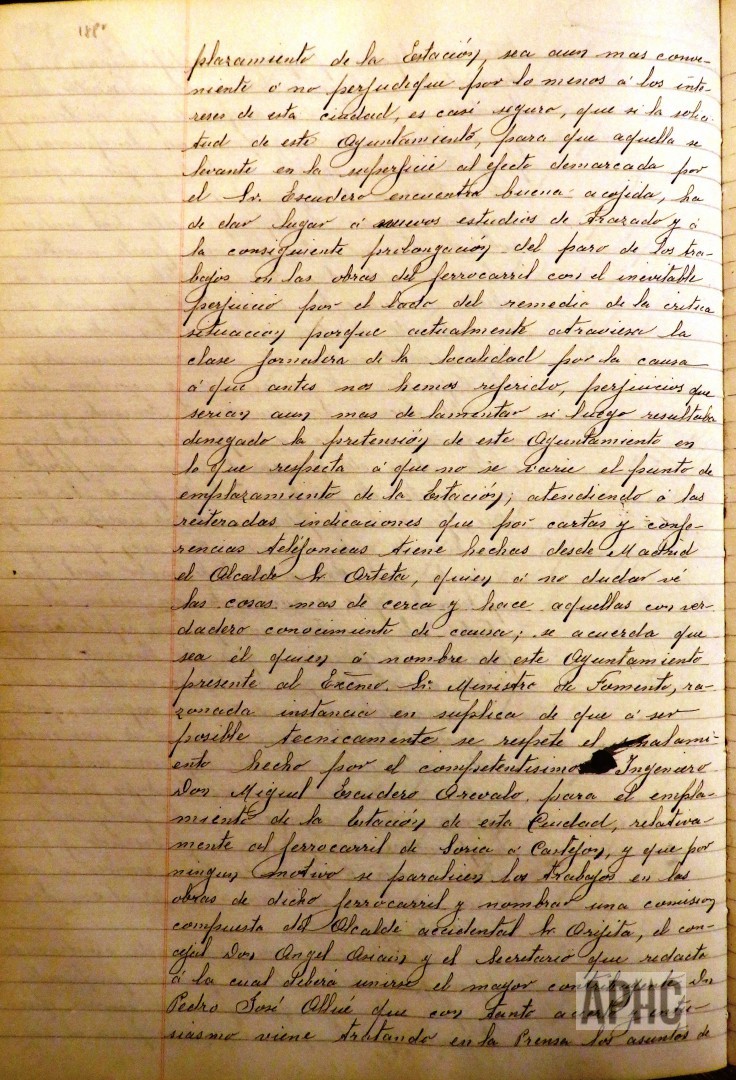 188
plazamiento de la Estación, sea aun mas conve-
niente ó no perjudique por lo menos á los inte-
reses de esta ciudad, es casi seguro, que si la solici-
tud de este Ayuntamiento, para que aquella se
levante en la superficie al efecto demarcada por
el Sr. Escudero encuentra buena acojida, ha
de dar lugar á nuevos estudios de trazado y á
la consiguiente prolongación del paro de los tra-
bajos en las obras del ferrocarril con el inevitable
perjuicio por el lado del remedio de la critica
situacion porque actualmente atraviesa la
clase jornalera de la localidad por la causa
á que antes nos hemos referido, perjuicios que
serian aun mas de lamentar si luego resultaba
denegado la pretensión de este Ayuntamiento en
lo que respecta á que no se varie el punto de
emplazamiento de la Estación; atendiendo á las
reiteradas indicaciones que por cartas y confe-
rencias teléfonicas tiene hechas desde Madrid
el Alcalde Sr. Arteta, quien á no dudar vé
las cosas mas de cerca y hace aquellas con ver-
dadero conocimiento de causa; se acuerda que
sea él quien á nombre de este Ayuntamiento
presente al Excmo. Sr. Ministro de Fomento, ra-
zonada instancia en suplica de que á ser
posible tecnicamente se respete el señalami-
ento hecho por el competentisimo Ingeniero
Don Miguel Escudero Arevalo, para el empla-
miento de la Estación de esta Ciudad, relativa-
mente al ferrocarril de Soria á Castejon, y que por
ningun motivo se paralicen los trabajos en las
obras de dicho ferrocarril y nombrar una comision
compuesta del Alcalde accidental Sr. Arijita, el con-
cejal Don Angel Asiain y el Secretario que redacta
á la cual deberá unirse el mayor contribuyente Dn
Pedro José Allué que con tanto y entu-
siasmo viene tratando en la Prensa los asuntos de
APHC